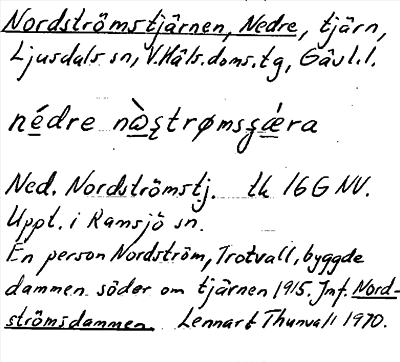 Nordströmstjärnen, Nedre, tjärn,
Ljusdals sn, V.Häls.doms.tg, Gävl.l.
nédre nὼştrømsşǽra
Ned. Nordströmstj. tk 16G NV.
Uppt. i Ramsjö sn.
En person Nordström, Trotvall, byggde
dammen söder om tjärnen 1915. Jmf. Nord-
strömsdammen. Lennart Thunvall 1970.